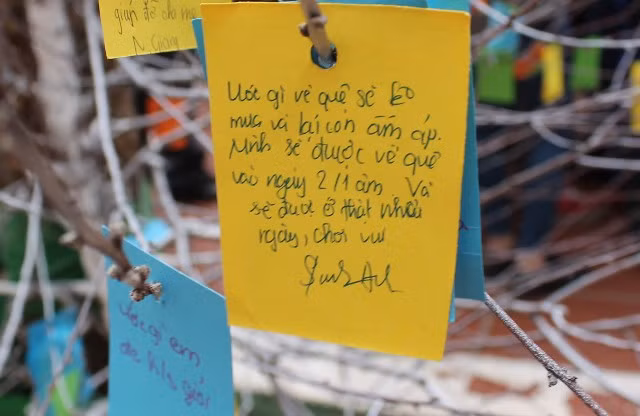 giúp đỡ cho mẹ
Ước gì về quê sẽ ko
mưa và lại còn ấm áp.
Mình sẽ được về quê
vào ngày 2/1 âm Và
sẽ được ở thật nhiều
ngày, chơi vui
Ước gì em,
đc hls giỏi